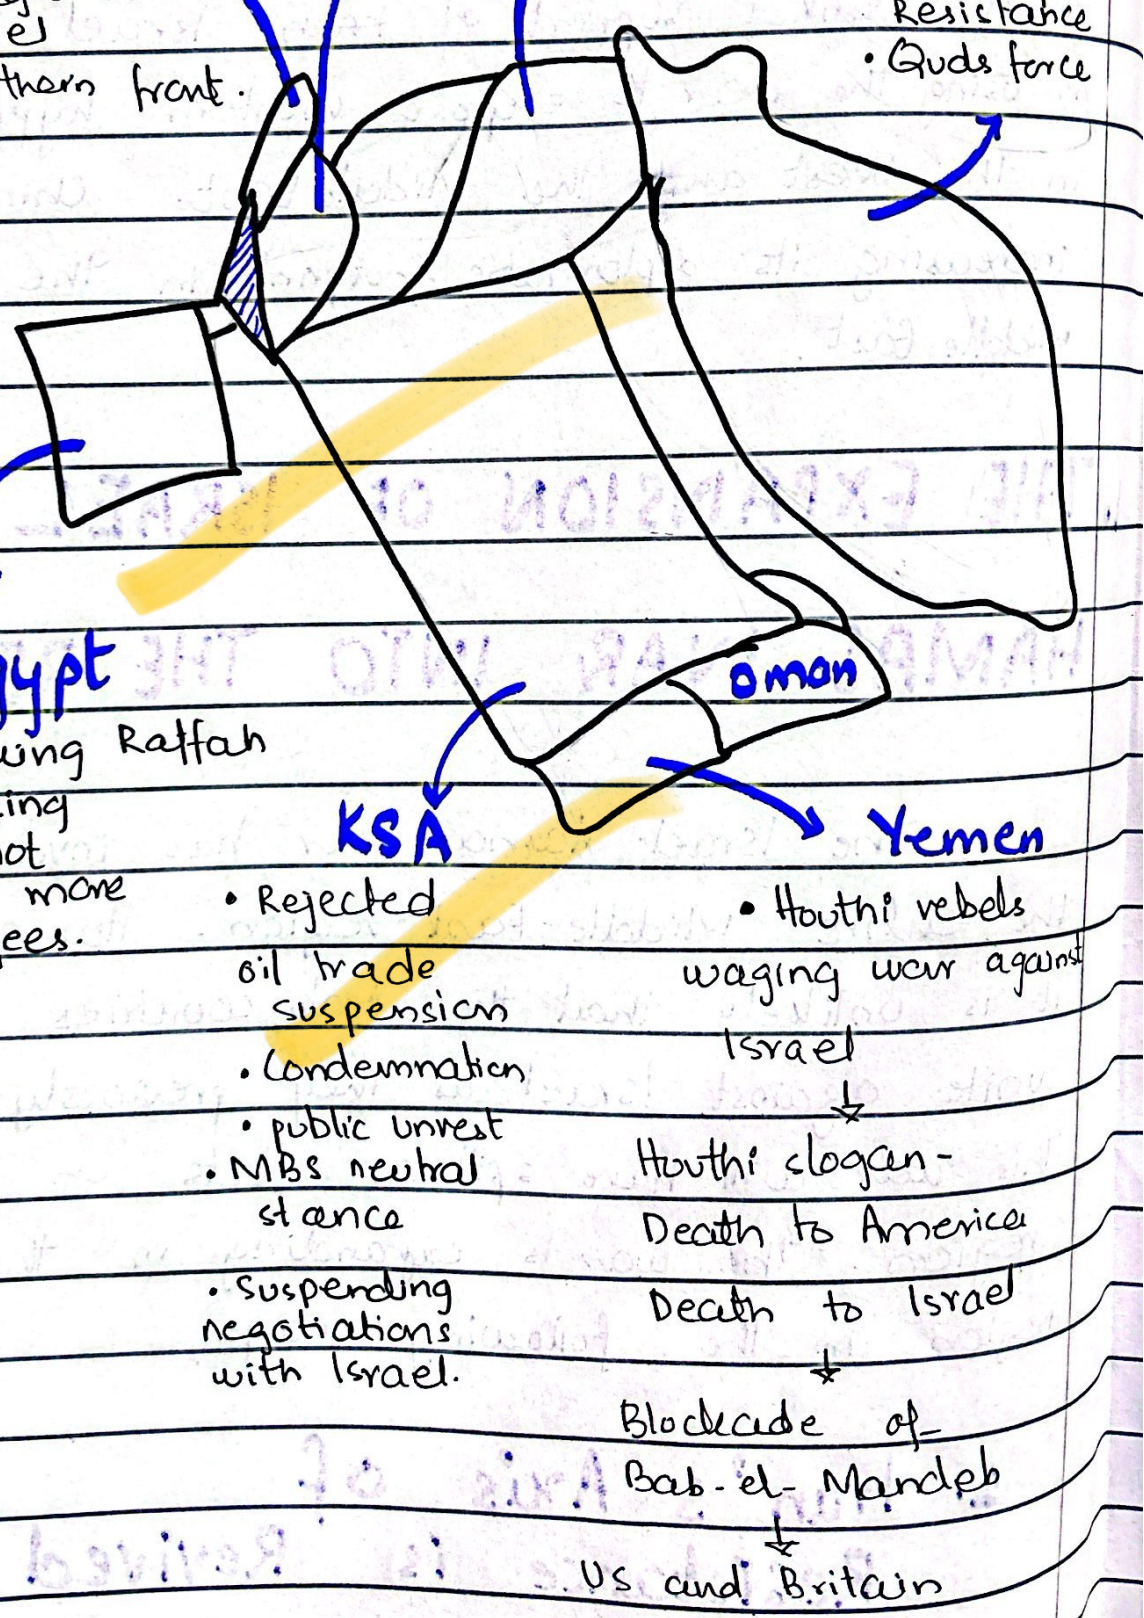 Resistance
• Quds force
thern front.
Oman
gypt
wing Raffah
not
more
ees.
KSA
• Rejected
oil trade
suspension
• Condemnation
• public unrest
• MBS neutral
stance
• Suspending
negotiations
with Israel.
Yemen
• Houthi rebels
waging war against
Israel
↓
Houthi slogan-
Death to America
Death to Israel
↓
Blockade of-
Bab-el-Mandeb
↓
US and Britain